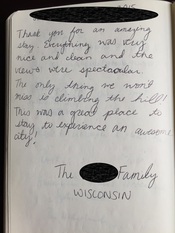 Thank you for an amazing
stay. Everything was very
nice and clean and the
views were spectacular.
The only thing we won't
miss is climbing the hill!
This was a great place to
stay to experience an awesome
city!
The Family
WISCONSIN